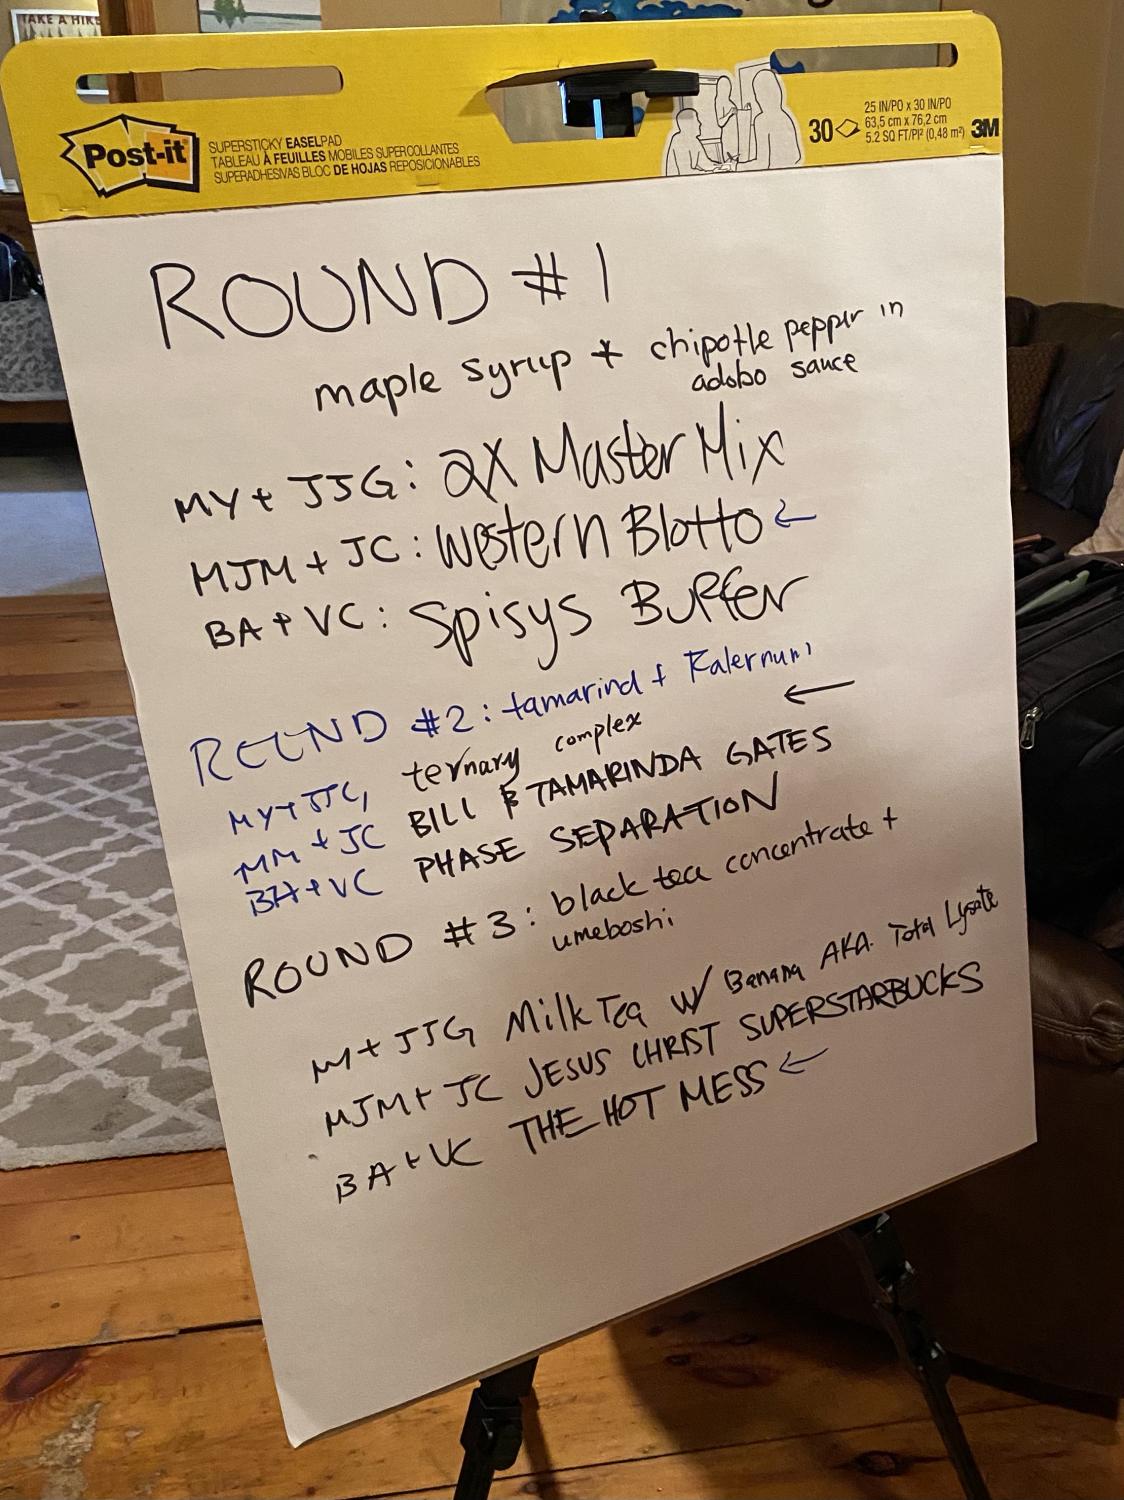 TAKE A HIKE
Post-it
SUPERSTICKY EASELPAD
TABLEAU À FEUILLES MOBILES SUPERCOLLANTES
SUPERADHESIVAS BLOC DE HOJAS REPOSICIONABLES
30
25 IN/PO x 30 IN/PO
63,5 cm x 76,2 cm
5.2 SQ FT/PI² (0,48 m²)
3M
ROUND #1
maple syrup + chipotle pepper in
adobo sauce
MY + JJG: 2X Master Mix
MJM + JC: Western Blotto ←
BA + VC: Spisys Buffer
ROUND #2: tamarind + Falernum
←
MY + JJG, ternary complex
MM + JC BILL & TAMARINDA GATES
BA + VC PHASE SEPARATION
ROUND #3: black tea concentrate +
umeboshi
M + JJG Milk Tea w/ Banana AKA. Total Lysate
MJM + JC JESUS CHRIST SUPERSTARBUCKS
BA + VC THE HOT MESS ←